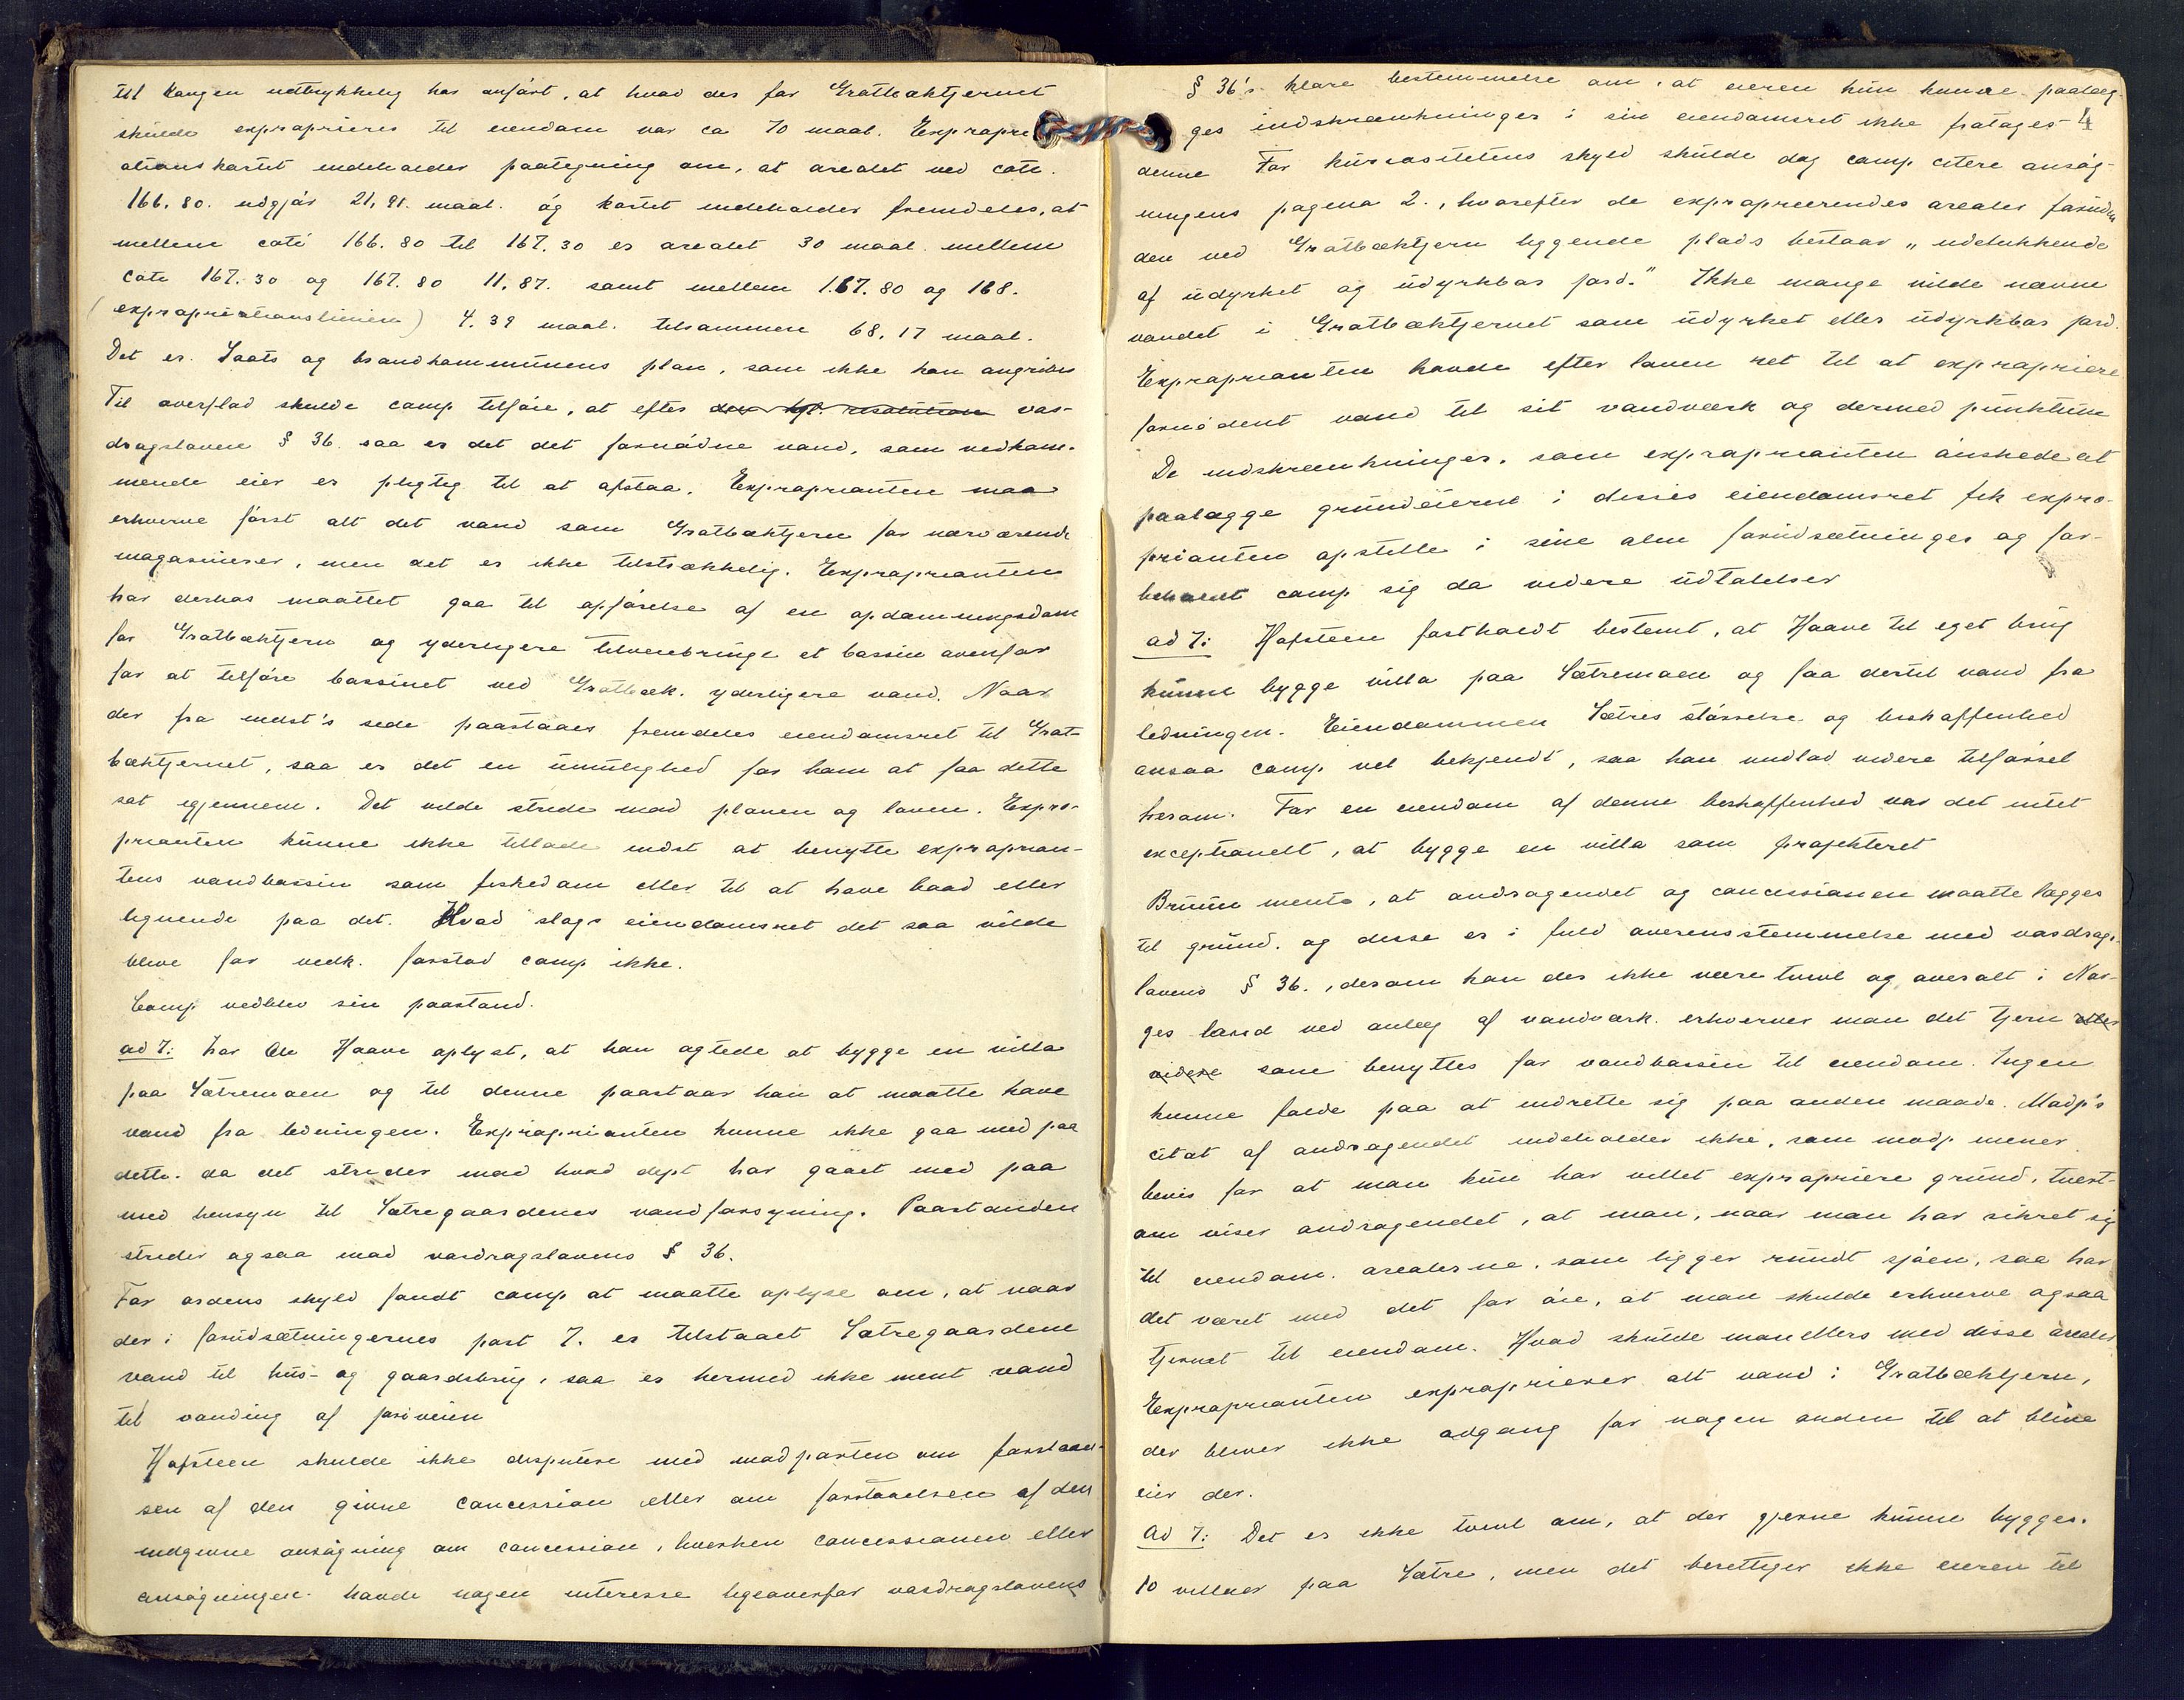 til Kongen uttrykkelig har anført, at hvad der for Gratbæktjernet
skulde exproprieres til eiendom var ca 70 maal. Expropri
ationskartet indeholder paategning om, at arealet ved cote.
166.80. udgjør 21,91. maal. og kartet indeholder fremdeles, at
mellem cote 166.80 til 167.30 er arealet 30 maal. mellem
cote 167.30 og 167.80 11,87. samt mellem 167.80 og 168.
(expropriationslinien) 4.39 maal. tilsammen 68,17 maal.
Det er Saats og brandkommunens plan, som ikke kan angribes
Til overflod skulde comp tilføie, at efter den kgl. resolution vas-
dragsloven § 36. saa er det det fornødne vand, som vedkom-
mende eier er pligtig til at afstaa. Exproprianten maa
erhverve først alt det vand som Gratbæktjern for nærværende
magasinerer, men det er ikke tilstrækkelig. Exproprianten
har derhos maattet gaa til opførelse af en opdæmningsdam
for Gratbæktjern og yderligere tilveiebringe et bassin ovenfor
for at tilføre bassinet ved Gratbæk. yderligere vand. Naar
der fra indst's side paastaaes fremdeles eiendomsret til Grat-
bæktjernet, saa er det en umulighed for ham at faa dette
sat igjennem. Det vilde stride mod planen og loven. Expro-
prianten kunne ikke tillade indst at benytte exproprian-
tens vandbassin som fiskedam eller til at have baad eller
lignende paa det. Hvad slags eiendomsret det saa vilde
blive for vedk. forstod comp ikke.
Comp vedblev sin paastand.
ad 7: har Ole Haave oplyst, at han agtede at bygge en villa
paa Sætremoen og til denne paastaar han at maatte have
vand fra ledningen. Exproprianten kunne ikke gaa med paa
dette. da det strider mod hvad dept har gaaet med paa
med hensyn til Sætregaardenes vandforsyning. Paastanden
strider ogsaa mod vasdragslovens § 36.
For ordens skyld fandt comp at maatte oplyse om, at naar
der i forudsætningernes post 7. er tilstaaet Sætregaardene
vand til hus- og gaardsbrug, saa er hermed ikke ment vand
til vanding af jordveien
Hafsteen skulde ikke disputere med modparten om forstaael-
sen af den givne concession eller om forstaaelsen af den
indgivne ansøgning om concession, hverken concessionen eller
ansøgningen havde nogen interesse ligeoverfor vasdragslovens
§ 36's klare bestemmelse om, at eieren kun kunde paalæg-
4
ges indskrænkninger i sin eiendomsret ikke fratages
denne For kuriositetens skyld skulde dog comp citere ansøg-
ningens pagina 2., hvorefter de exproprierendes arealer foruden
den ved Gratbæktjern liggende plads bestaar „udelukkende
af udyrket og udyrkbar jord." Ikke mange vilde nævne
vandet i Gratbæktjernet som udyrket eller udyrkbar jord.
Exproprianten havde efter loven ret til at expropriere
fornødent vand til sit vandværk og dermed punktum
De indskrænkninger, som exproprianten ønskede at
paalægge grundeierne i disses eiendomsret fik expro-
prianten opstille i sine alm forudsætninger og for-
beholdt comp sig da videre udtalelser
ad 7: Hafsteen fastholdt bestemt, at Haave til eget brug
kunne bygge villa paa Sætremoen og faa dertil vand fra
ledningen. Eiendommen Sætres størrelse og beskaffenhed
ansaa comp vel bekjendt, saa han undlod videre tilførsel
herom. For en eiendom af denne beskaffenhed var det intet
exceptionelt, at bygge en villa som projekteret
Bruun mente, at andragendet og concessionen maatte lægges
til grund. og disse er i fuld overensstemmelse med vasdrags-
lovens § 36., derom kan der ikke være tvivl og overalt i Nor-
ges land ved anlæg af vandværk. erhverver man det tjern eller
videre som benyttes for vandbassin til eiendom. Ingen
kunne falde paa at indrette sig paa anden maade. Modp's
citat af andragendet indeholder ikke, som modp mener
bevis for at man kun har villet expropriere grund, tvert-
om viser andragendet, at man, naar man har sikret sig
til eiendom. arealerne, som ligger rundt sjøen, saa har
det været med det for øie, at man skulde erhverve ogsaa
tjernet til eiendom. Hvad skulde man ellers med disse arealer
Exproprianten exproprierer alt vand i Gratbæktjern,
der bliver ikke adgang for nogen anden til at blive
eier der.
Ad 7: Det er ikke tvivl om, at der gjerne kunne bygges.
10 villaer paa Sætre, men det berettiger ikke eieren til